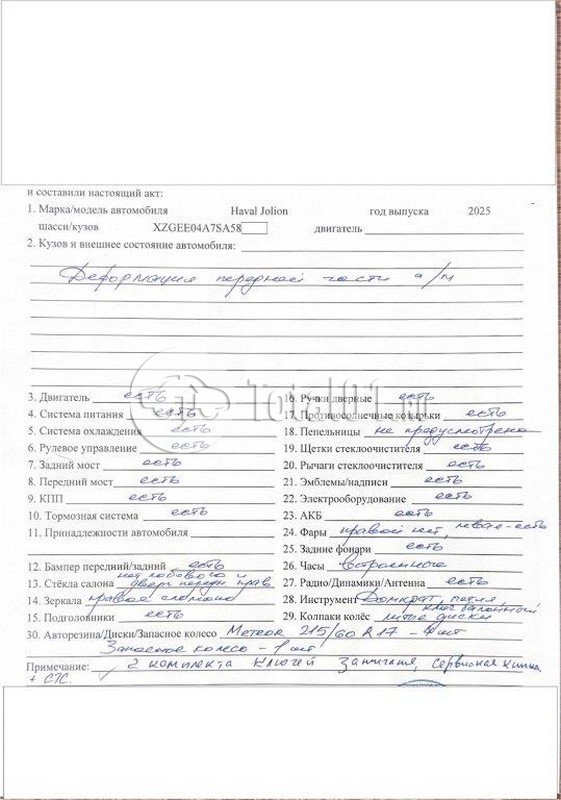 и составили настоящий акт:
1. Марка/модель автомобиля Haval Jolion год выпуска 2025
шасси/кузов XZGEE04A7SA58 двигатель
2. Кузов и внешнее состояние автомобиля:
Деформация передней части а/м
Total01.ru
3. Двигатель есть
4. Система питания есть
5. Система охлаждения есть
6. Рулевое управление есть
7. Задний мост есть
8. Передний мост есть
9. КПП есть
10. Тормозная система есть
11. Принадлежности автомобиля
12. Бампер передний/задний есть
13. Стёкла салона нет лобового и двери передн прав
14. Зеркала правое сломано
15. Подголовники есть
16. Ручки дверные есть
17. Противосолнечные козырьки есть
18. Пепельницы не предусмотрено
19. Щетки стеклоочистителя есть
20. Рычаги стеклоочистителя есть
21. Эмблемы/надписи есть
22. Электрооборудование есть
23. АКБ есть
24. Фары правой нет, левая-есть
25. Задние фонари есть
26. Часы встроенные
27. Радио/Динамики/Антенна есть
28. Инструмент Домкрат, петля ключ балонный
29. Колпаки колёс литые диски
30. Авторезина/Диски/Запасное колесо Meteor 215/60 R17 - 4 шт
Запасное колесо - 1 шт
Примечание: 2 комплекта ключей зажигания, сервисная книжка
+ СТС.